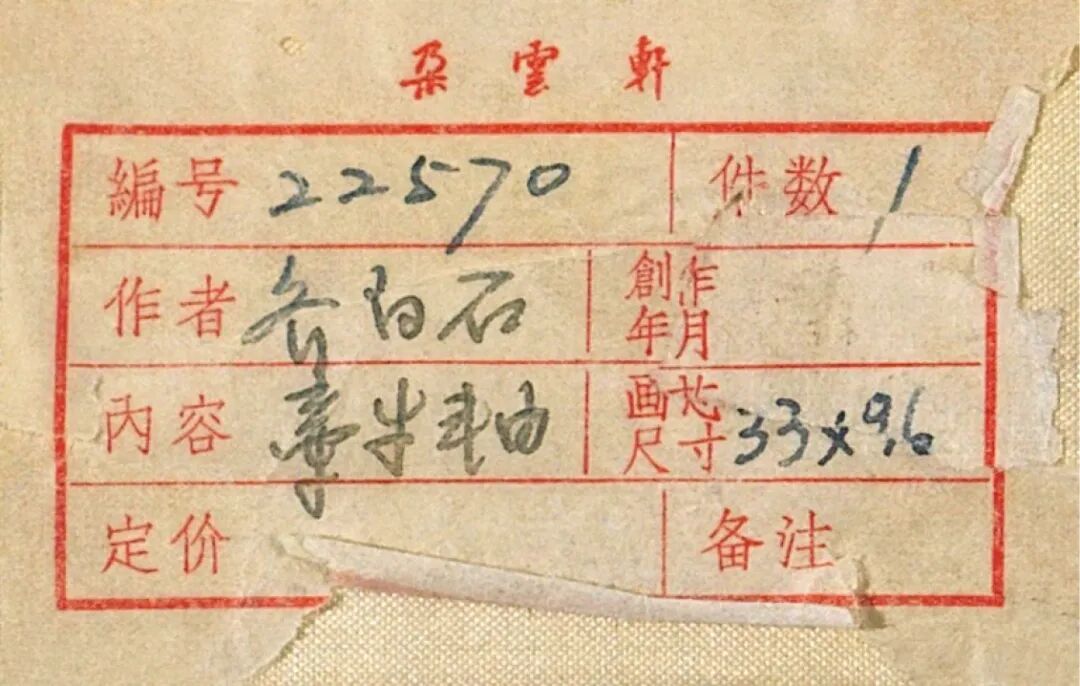 朵雲軒
編号 22570 件数 1
作者 齐白石 創作年月
內容 牽牛轴 画芯尺寸 33×9.6
定价 备注